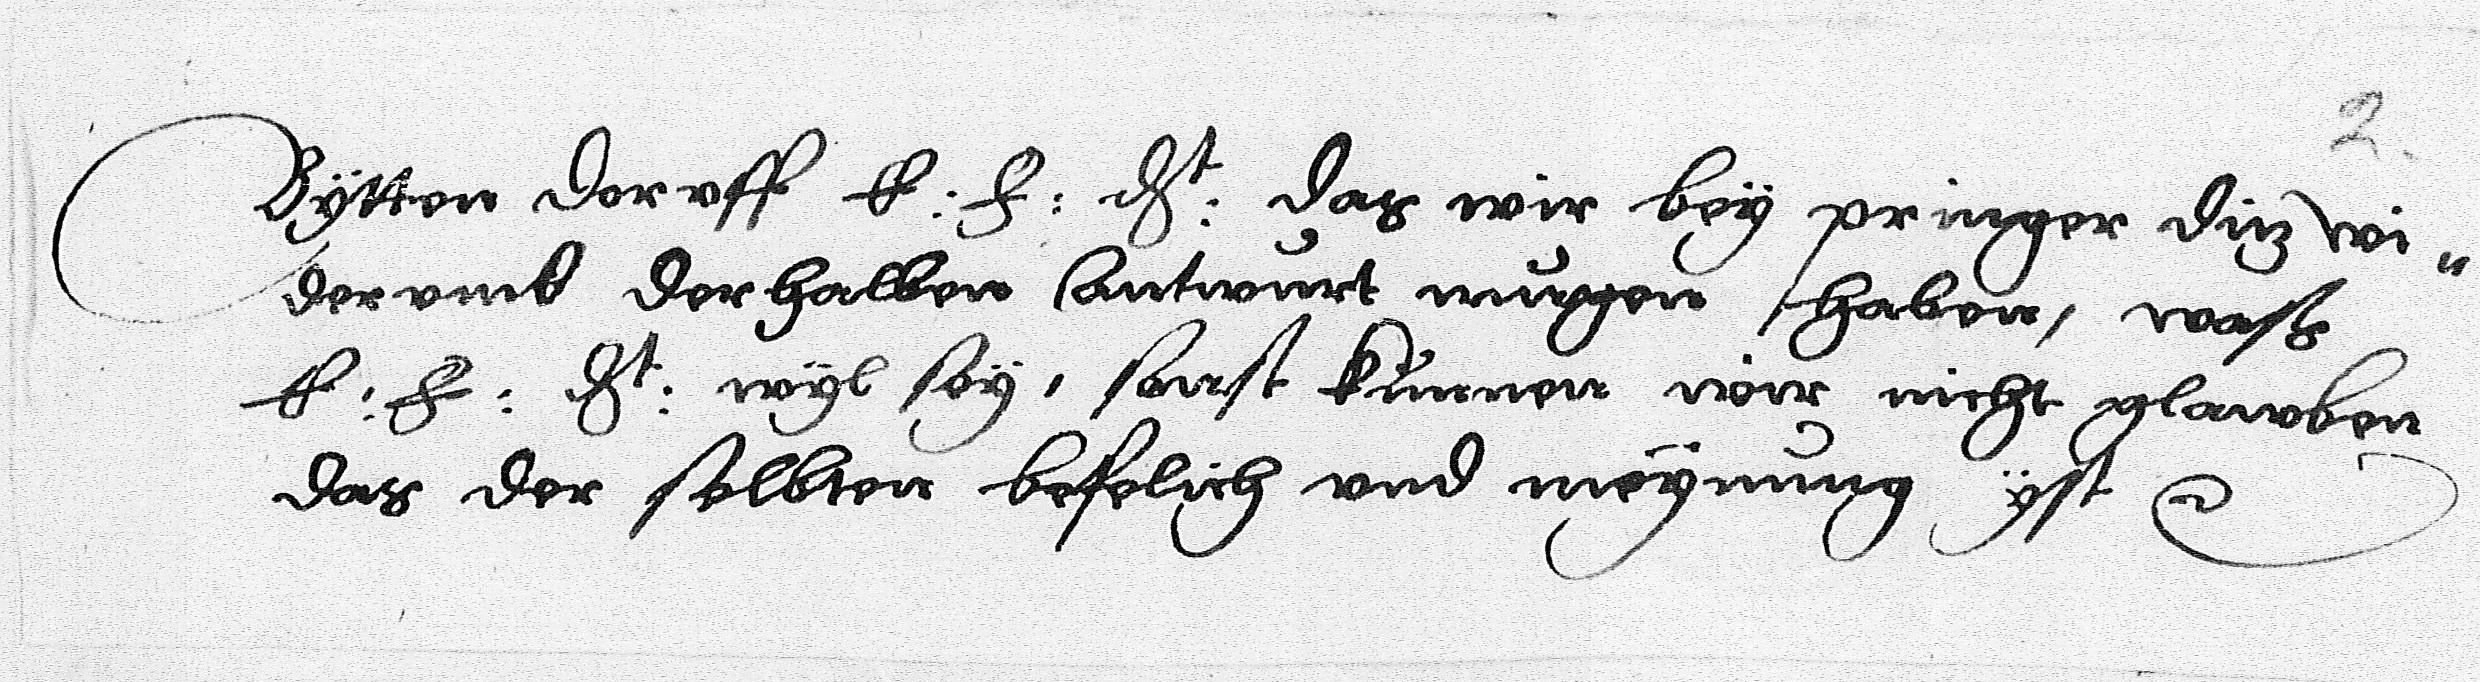 2.
Bytten der vff E: F: Gt: das wir bey pringer diz wi„
dervmb derhalben Antwurt mugen haben, was
E: F: Gt: wyl sey, sonst kunnen wir nicht glawben
das der selbten befelich vnd meynung yst